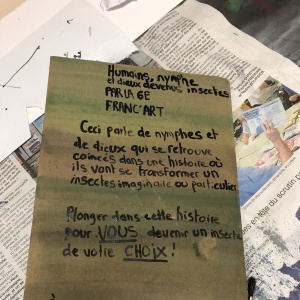 Humains, nymphe
et dieux devenus insectes
PAR LA 6E
FRANC'ART
Ceci parle de nymphes et
de dieux qui se retrouve
coincés dans une histoire où
ils vont se transformer un
insectes imaginaire ou particulier
Plonger dans cette histoire
pour VOUS devenir un insecte
de votre CHOIX !